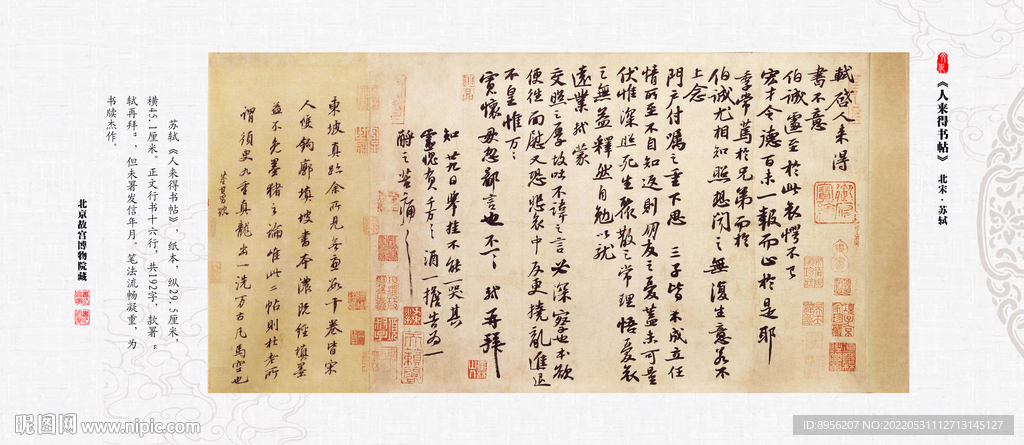 《人来得书帖》 北宋·苏轼
軾啓人来得
書不意
伯誠遽至於此哀愕不已
宏才令德百未一報而止於是耶
季常篤於兄弟而於
伯誠尤相知照想聞之無復生意若不
上念
門户付嘱之重下思 三子皆不成立任
情所至不自知返則朋友之憂蓋未可量
伏惟深照死生聚散之常理悟憂哀
之無益釋然自勉以就
遠業軾蒙
交照之厚故吐不諱之言必深察也本欲
便往面慰又恐悲哀中反更撓亂進退
不皇惟万々
寬懷毋忽鄙言也不一一 軾再拜
知廿九日舉挂不能哭其
靈愧負千万々酒一擔告為一
酹之苦痛々
東坡真跡余所見無慮數十卷皆宋
人雙鉤廓填坡書本濃既經填墨
益不免墨豬之論唯此二帖則杜老所
謂須臾九重真龍出一洗万古凡馬空也
董其昌跋
苏轼《人来得书帖》,纸本,纵29.5厘米,
横45.1厘米。正文行书十六行,共192字,款署“
轼再拜”,但未署发信年月。笔法流畅凝重,为
书牍杰作。
北京故宫博物院藏
昵图网 www.nipic.com
ID:8956207 NO:20220531112713145127